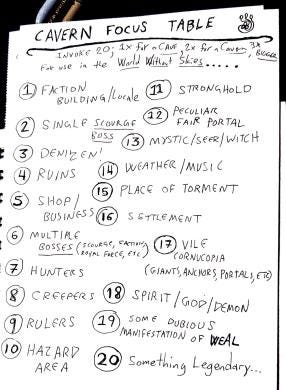 CAVERN FOCUS TABLE
INVOKE 20; 1x for a CAVE, 2x for a Cavern, 3x BIGGER
For use in the World Without Skies.....
1 FACTION
BUILDING/Locale
2 SINGLE SCOURGE
BOSS
3 DENIZEN!
4 RUINS
5 SHOP/
BUSINESS
6 MULTIPLE
BOSSES (SCOURGE, FACTION,
ROYAL FORCE, ETC)
7 HUNTERS
8 CREEPERS
9 RULERS
10 HAZARD
AREA
11 STRONGHOLD
12 PECULIAR
FAIR PORTAL
13 MYSTIC/SEER/WITCH
14 WEATHER/MUSIC
15 PLACE OF TORMENT
16 SETTLEMENT
17 VILE
CORNUCOPIA
(GIANTS, ANCHORS, PORTALS, ETC)
18 SPIRIT/GOD/DEMON
19 SOME DUBIOUS
MANIFESTATION OF WEAL
20 Something Legendary...